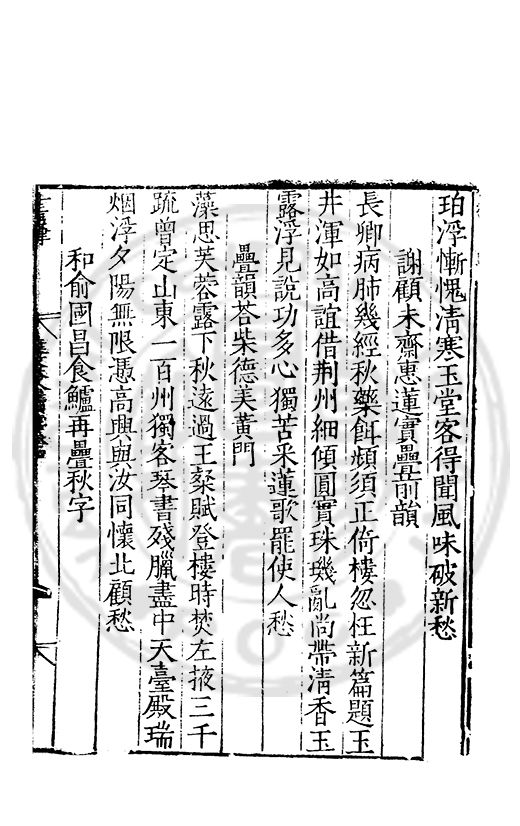 珀浮慚愧清寒玉堂客得聞風味破新愁
謝顧未齋惠蓮實疊前韻
長卿病肺幾經秋藥餌頻須正倚樓忽枉新篇題玉
井渾如高誼借荆州細傾圓實珠璣亂尚帶清香玉
露浮見說功多心獨苦采蓮歌罷使人愁
疊韻荅柴德美黃門
藻思芙蓉露下秋遠過王粲賦登樓時焚左掖三千
疏曾定山東一百州獨客琴書殘臘盡中天臺殿瑞
烟浮夕陽無限憑高興與汝同懷北顧愁
和俞國昌食鱸再疊秋字